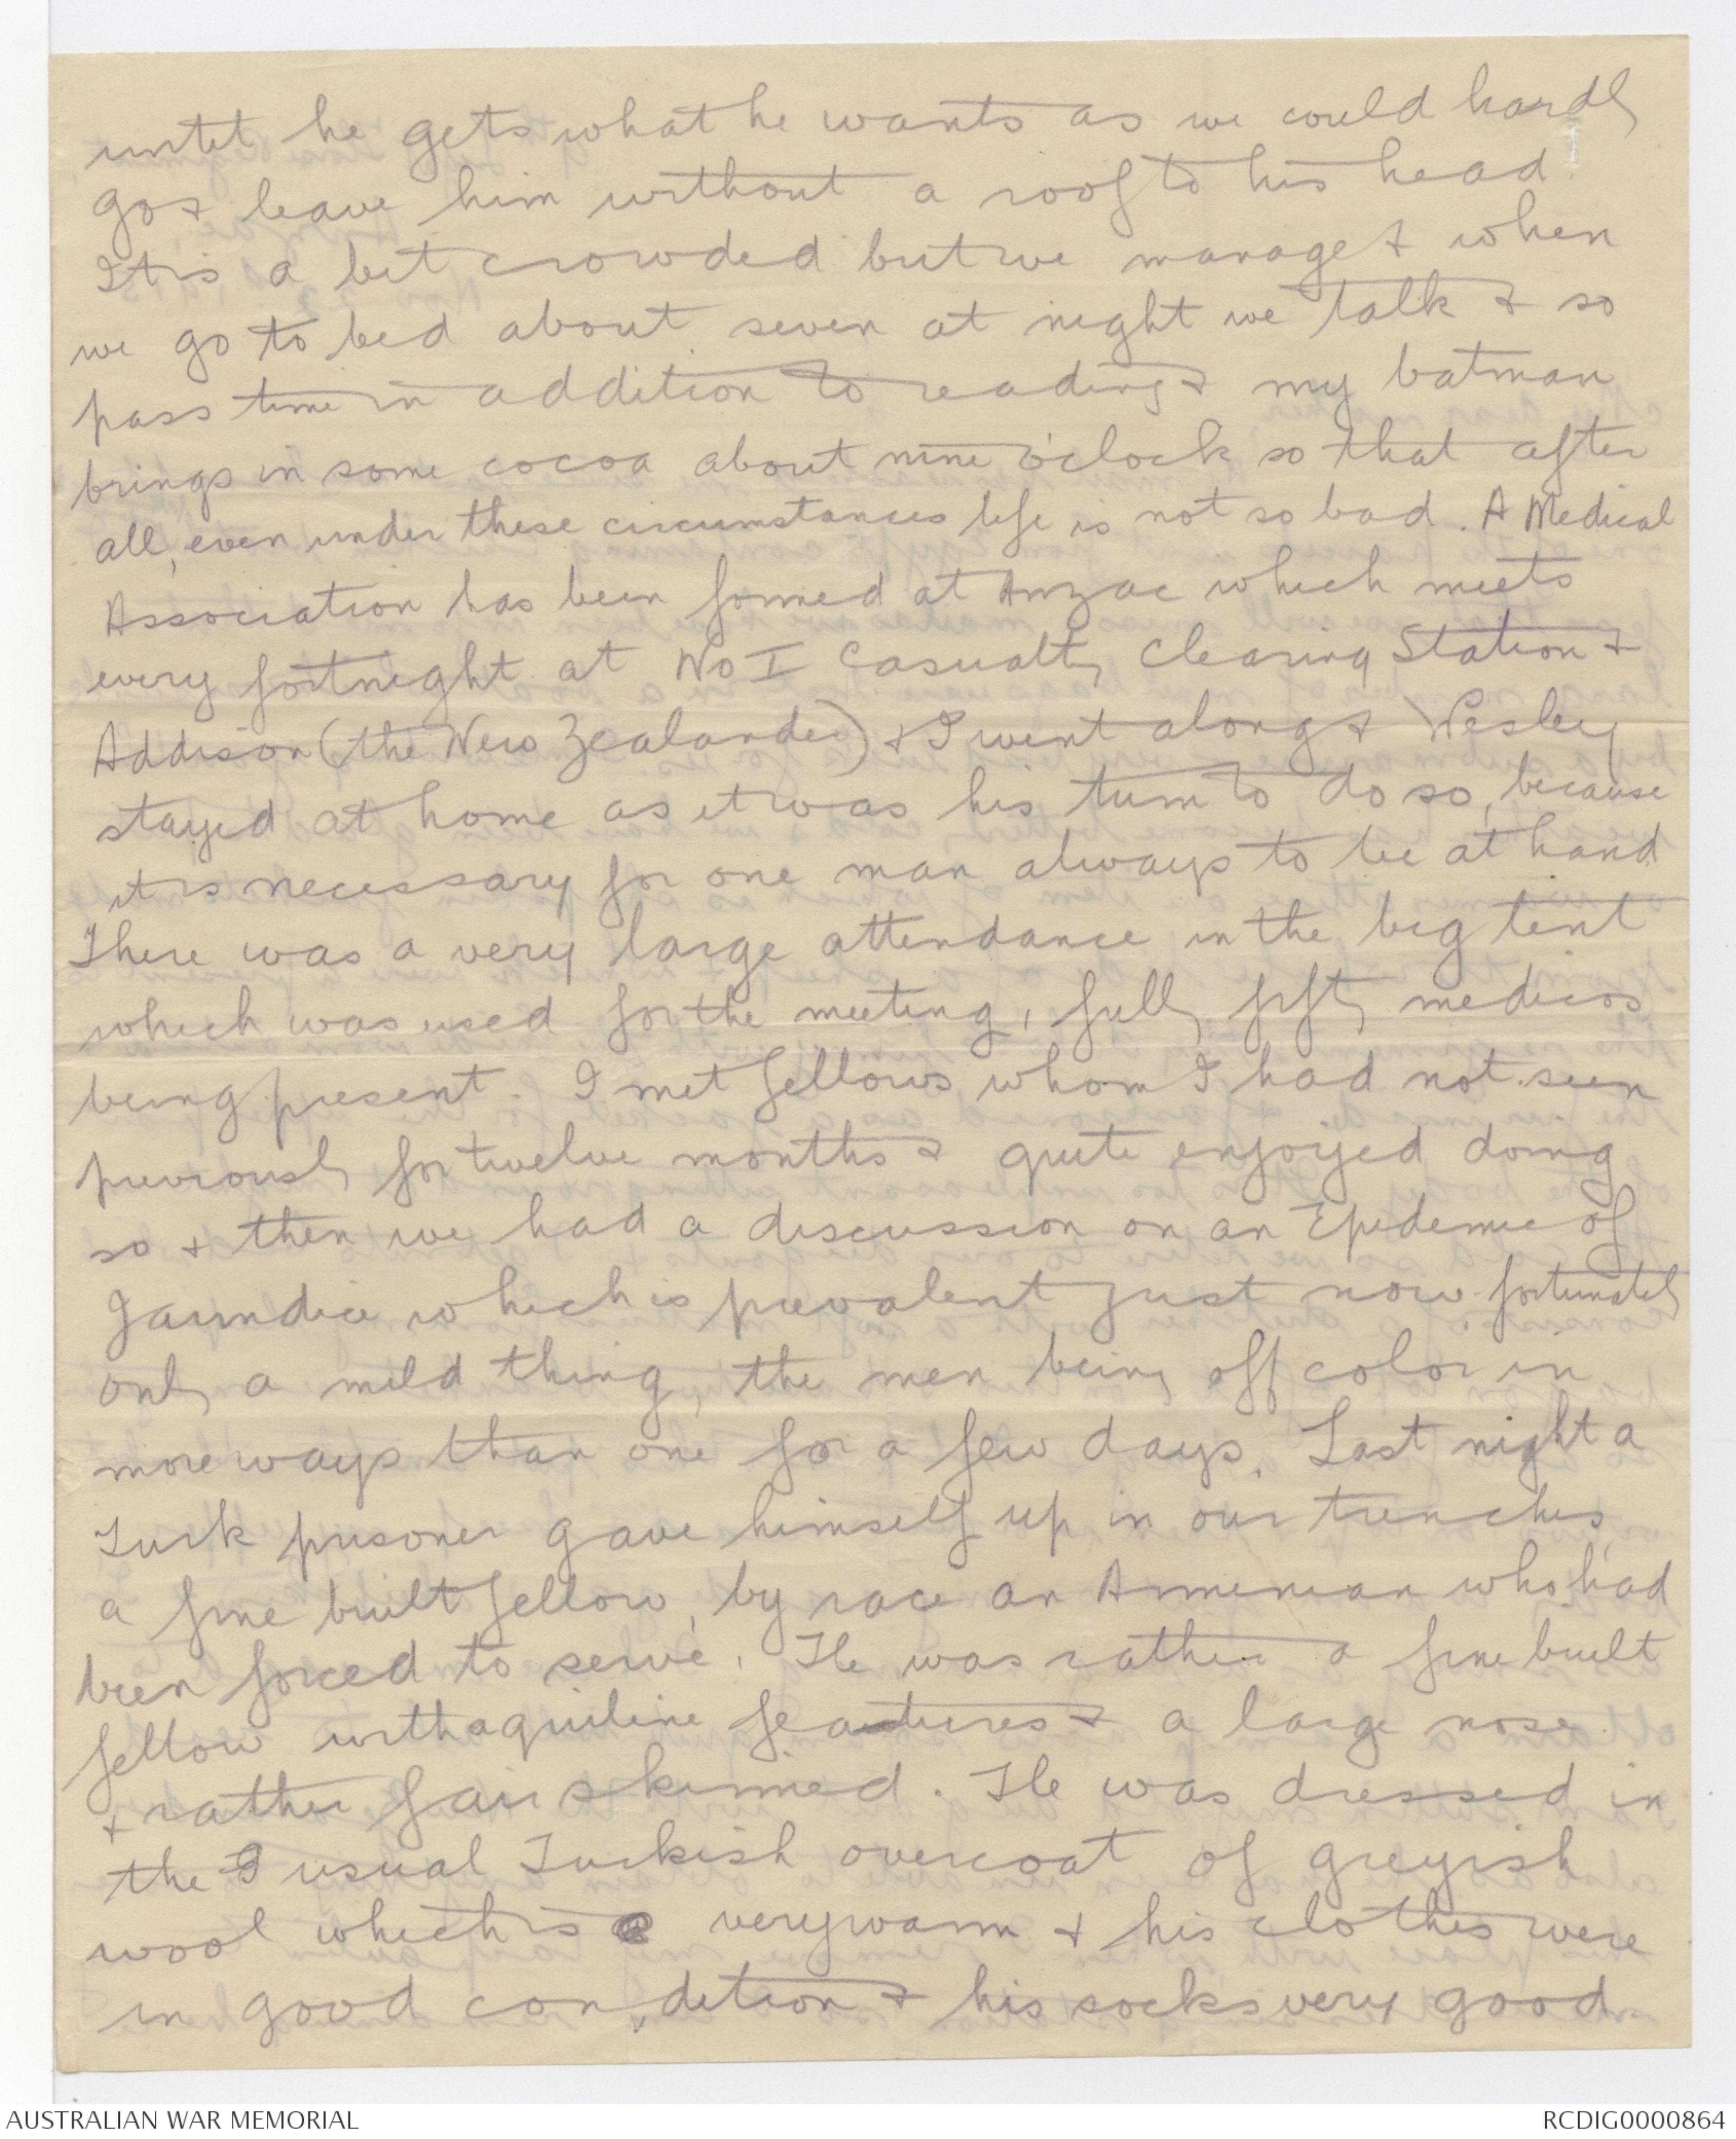 until he gets what he wants as we could hardly
go & leave him without a roof to his head.
It is a bit crowded but we manage & when
we go to bed about seven at night we talk & so
pass time in addition to reading & my batman
brings in some cocoa about nine o'clock so that after
all, even under these circumstances life is not so bad. A Medical
Association has been formed at Anzac which meets
every fortnight at No I Casualty Clearing Station &
Addison (the New Zealander) & I went along & Wesley
stayed at home as it was his turn to do so, because
it is necessary for one man always to be at hand
There was a very large attendance in the big tent
which was used for the meeting, fully fifty medicos
being present. I met fellows whom I had not seen
previously for twelve months & quite enjoyed doing
so & then we had a discussion on an Epidemic of
Jaundice which is prevalent just now fortunately
only a mild thing, the men being off color in
more ways than one for a few days. Last night a
Turk prisoner gave himself up in our trenches,
a fine built fellow, by race an Armenian who had
been forced to serve. He was rather a fine built
fellow with aquiline features & a large nose
& rather fair skinned. He was dressed in
the usual Turkish overcoat of greyish
wool which is very warm & his clothes were
in good condition & his socks very good
AUSTRALIAN WAR MEMORIAL
RCDIG0000864